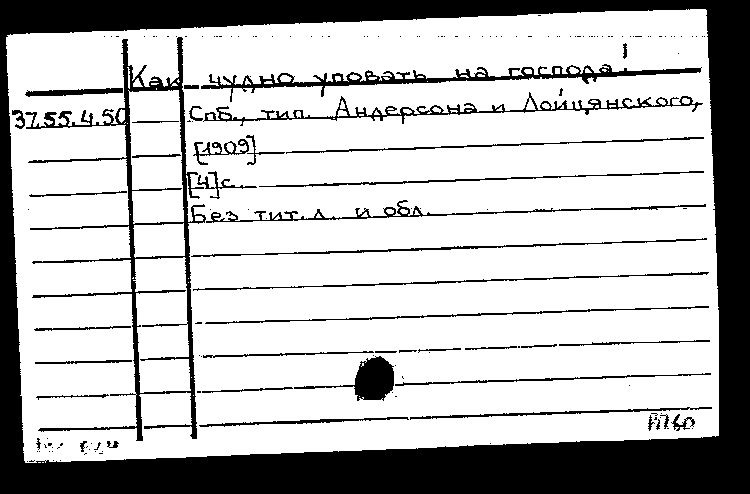 Как чудно уповать на господа!
37.55.4.50 Спб., тип. Андерсона и Лойцянского,
[1909]
[4]с.
Без тит. л. и обл.